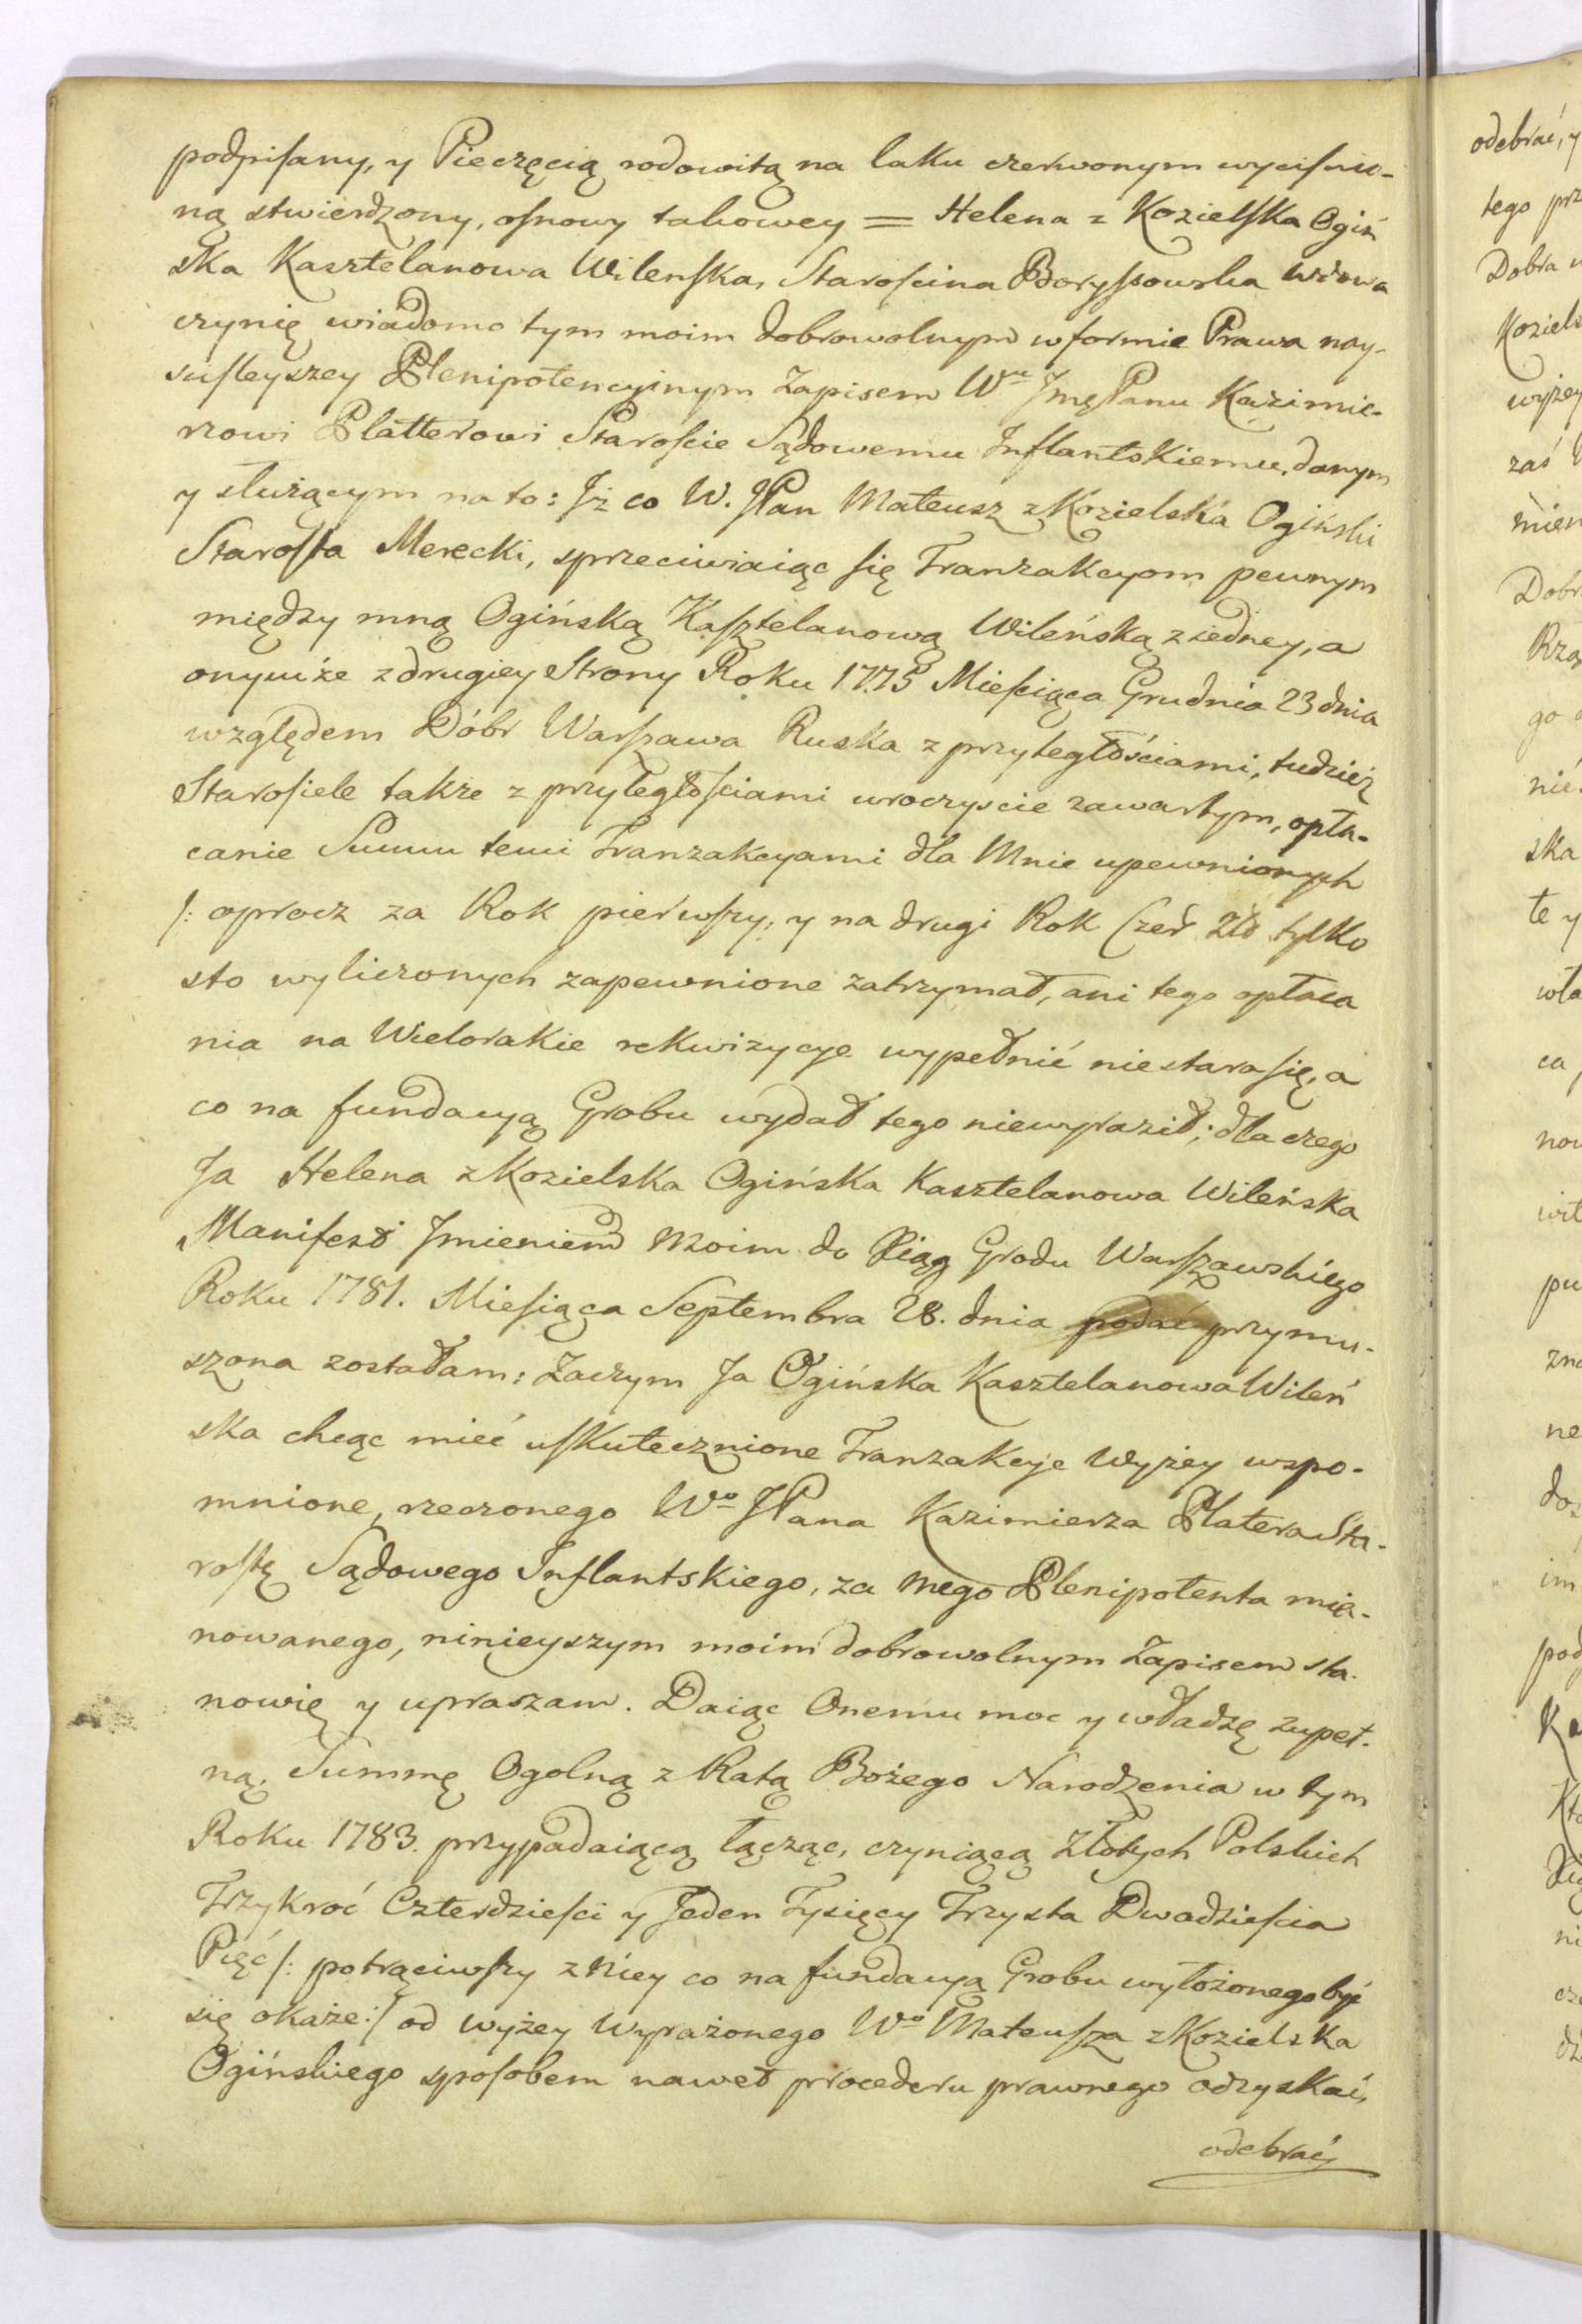 podpisany, y Pieczęcią rodowitą na laku czerwonym wyciśnio-
ną stwierdzony, osnowy takowey = Helena z Kozielska Ogiń
ska Kasztelanowa Wilenska, Starościna Boryssowska wdowa
czynię wiadomo tym moim dobrowolnym w formie Prawa nay-
susleyszey Plenipotencyinym Zapisem Wu Jmę Panu Kazimie-
rzowi Platterowi Staroście Sądowemu Inflantskiemu, danym
y służącym na to: Iż co W. JPan Mateusz z Kozielska Ogiński
Starosta Merecki, sprzeciwiaiąc się Tranzakcyom pewnym
między mną Ogińską Kasztelanową Wileńską z iedney, a
onymże z drugiey Strony Roku 1775 Miesiąca Grudnia 23 dnia
względem Dóbr Warszawa Ruska z przyległościami, tudzież
Starosiele także z przyległościami uroczyscie zawartym, opła-
canie Summ temi Tranzakcyami dla Mnie upewnionych
/: oprocz za Rok pierwszy, y na drugi Rok Czer Zło tylko
sto wyliczonych zapewnione zatrzymał, ani tego opłaca
nia na Wielorakie rekwizycye wypełnić nie stara się, a
co na fundacyą Grobu wydał tego niewyraził; dla czego
Ja Helena z Kozielska Ogińska Kasztelanowa Wileńska
Manifest Jmieniem Moim do Xiąg Grodu Warszawskiego
Roku 1781. Miesiąca Septembra 28. dnia podać przymu-
szona zostałam: Zaczym Ja Ogińska Kasztelanowa Wileń
ska chcąc mieć uskutecznione Tranzakcye Wyżey wspo-
mnione, rzeczonego Wo JPana Kazimierza Platera Sta-
rostę Sądowego Inflantskiego, za mego Plenipotenta mia-
nowanego, ninieyszym moim dobrowolnym Zapisem sta-
nowię y upraszam. Daiąc Onemu moc y władzę zupeł-
ną, Summę Ogolną z Ratą Bożego Narodzenia w tym
Roku 1783. przypadaiącą łącząc, czyniącą Złotych Polskich
Trzykroć Czterdzieści y Jeden Tysięcy Trzysta Dwadzieścia
Pięć /: potrąciwszy z Niey co na fundacyą Grobu wyłożonego być
się okaże :/ od wyżey Wyrażonego Wo Mateusza z Kozielska
Ogińskiego sposobem nawet procederu prawnego odzyskać,
odebrać,
odebrać, y
tego prz
Dobra
Koziels
wyżey
zaś
mien
Dobr
Rzą
go
nie
ska
te y
wła
ca
now
pu
zna
ne
im
pod
Ka
Kto
ni